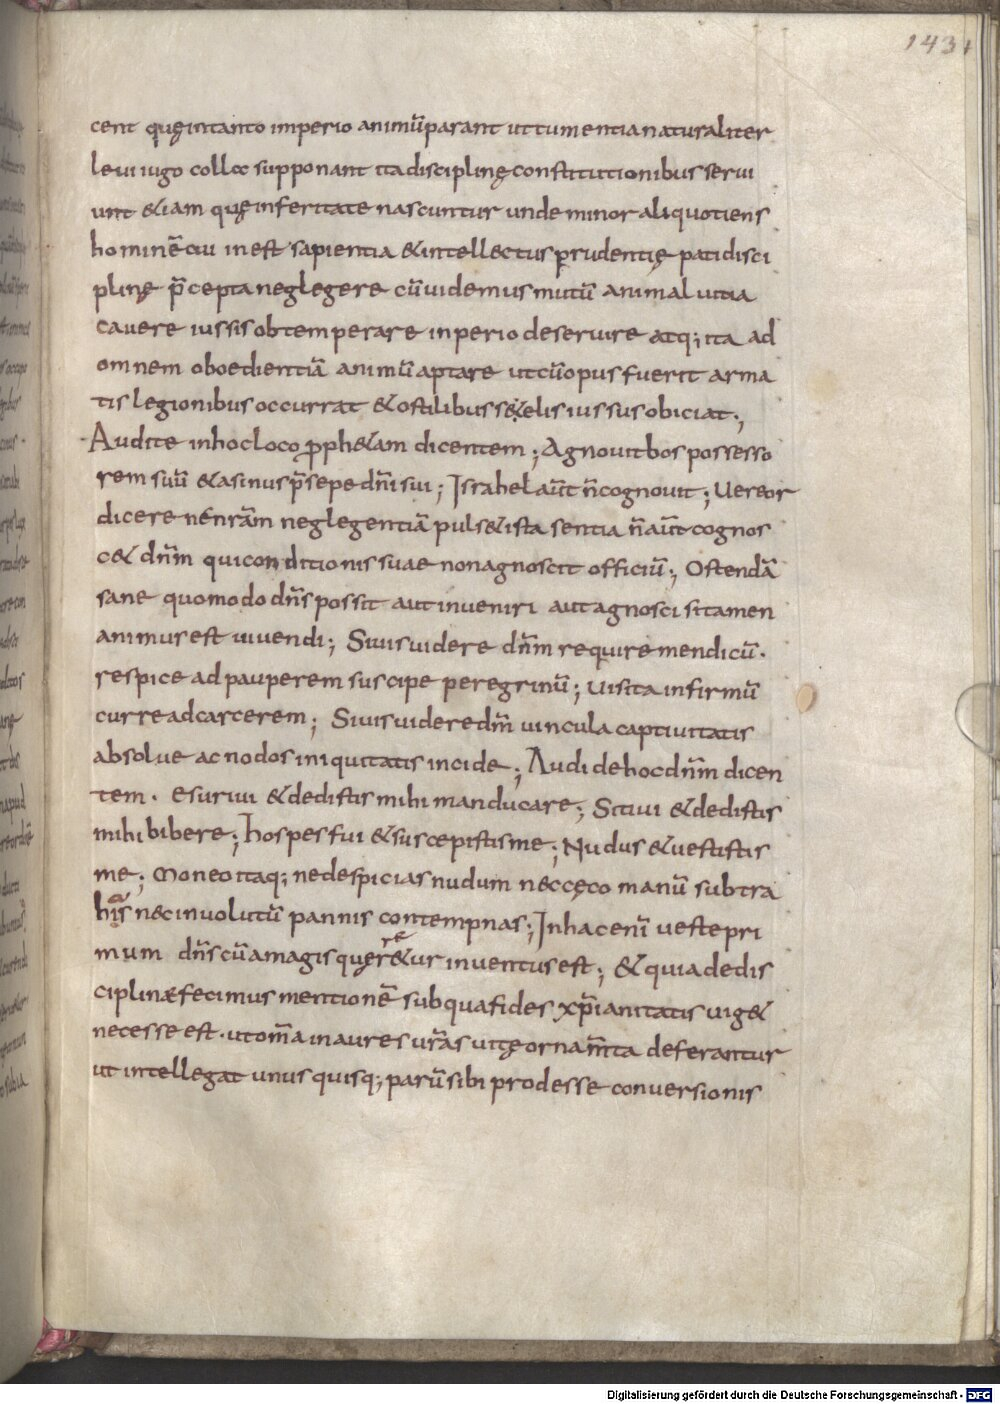 1431
cent quę intanto imperio animū parant uttumentia naturaliter
leui iugo collo supponant ita disciplinę constitutionibus serui
unt &iam quę inferitate nascuntur unde minor aliquotiens
hominē cui inest sapientia & intellectus prudentię pati disci
plinę p̄cepta neglegere cū uidemus mutū animal uitia
cauere iussis obtemperare inperio deseruire atq; ita ad
omnem oboedientiā animū aptare ut cū opus fuerit arma
tis legionibus occurrat & ostilibus se telis iussus obiciat;
Audite inhoc loco proph&am dicentem; Agnouit bos possesso
rem suū & asinus p̄sepe dn̄i sui; Israhel aūt n̄ cognouit; Uereor
dicere ne nr̄am neglegentiā puls& ista sentia n̄ aūt cognos
c& dn̄m qui conditionis suae non agnoscit officiū; Ostendā
sane quomodo dn̄s possit aut inueniri aut agnosci si tamen
animus est uiuendi; Si uis uidere dn̄m require mendicū.
respice ad pauperem suscipe peregrinū; uisita infirmū
curre ad carcerem; Si uis uidere dn̄m uincula captiuitatis
absolue ac nodos iniquitatis incide; Audi de hoc dn̄m dicen
tem. esuriui & dedistis mihi manducare; Sitiui & dedistis
mihi bibere; hospes fui & suscepistis me; Nudus & uestistis
me; Moneo itaq; ne despicias nudum nec cęco manū subtra
his nec inuolutū pannis contempnas; In hac enī ueste pri
mum dn̄s cū a magis quęrer&ur inuentus est; & quia de dis
ciplinæ fecimus mentionē sub qua fides xp̄ianitatis uig&
necesse est. ut om̄a in aures ur̄as uitę ornam̄ta deferantur
ut intellegat unus quisq; parū sibi prodesse conuersionis
Digitalisierung gefördert durch die Deutsche Forschungsgemeinschaft - DFG